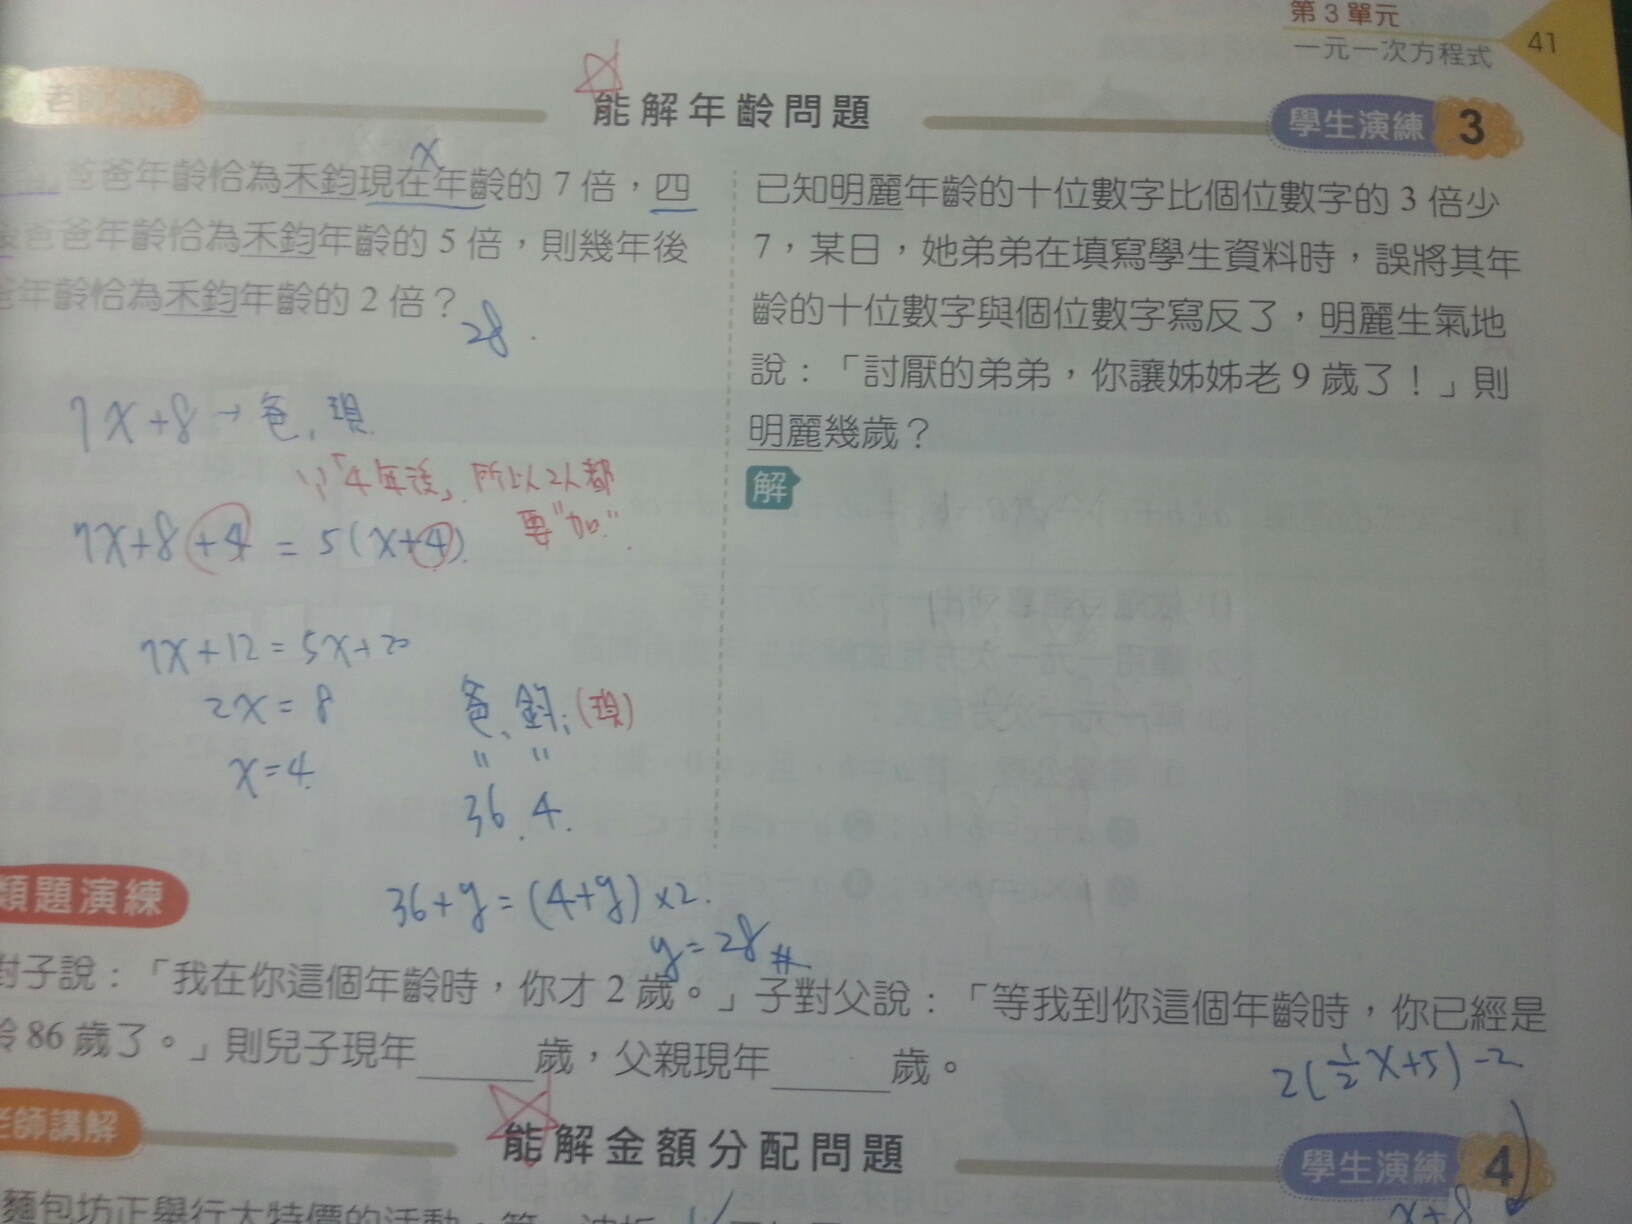 第3單元
一元一次方程式
41
能解年齡問題
學生演練 3
x
爸爸年齡恰為禾鈞現在年齡的7倍，四
爸爸年齡恰為禾鈞年齡的5倍，則幾年後
年齡恰為禾鈞年齡的2倍？
28.
7x+8→爸,現
∵「4年後」所以2人都
要"加".
7x+8+4=5(x+4)
7x+12=5x+20
2x=8
x=4
爸,鈞,(現)
" "
36,4.
36+y=(4+y)×2.
y=28#
已知明麗年齡的十位數字比個位數字的3倍少
7，某日，她弟弟在填寫學生資料時，誤將其年
齡的十位數字與個位數字寫反了，明麗生氣地
說：「討厭的弟弟，你讓姊姊老9歲了！」則
明麗幾歲？
解
類題演練
對子說：「我在你這個年齡時，你才2歲。」子對父說：「等我到你這個年齡時，你已經是
齡86歲了。」則兒子現年____歲，父親現年____歲。
2(½x+5)-2
老師講解
能解金額分配問題
學生演練 4
x+8
麵包坊正舉行大特價的活動